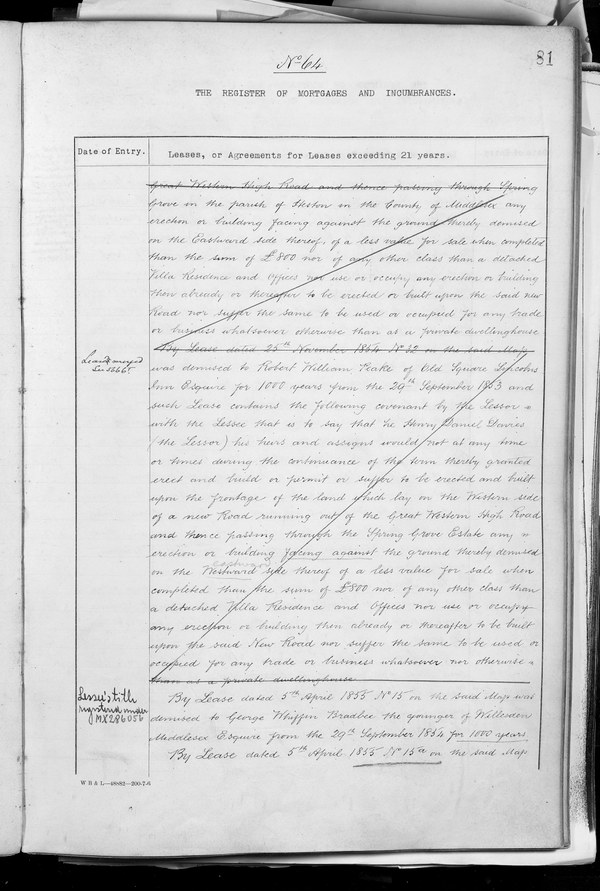 No 64
81
THE REGISTER OF MORTGAGES AND INCUMBRANCES.
Date of Entry.
Leases, or Agreements for Leases exceeding 21 years.
Great Western High Road and thence passing through Spring
Grove in the parish of Heston in the County of Middlesex any
erection or building facing against the ground thereby demised
on the Eastward side thereof of a less value for sale when completed
than the sum of £800 nor of any other class than a detached
Villa Residence and Offices nor use or occupy any erection or building
then already or thereafter to be erected or built upon the said new
Road nor suffer the same to be used or occupied for any trade
or business whatsoever otherwise than as a private dwellinghouse
By Lease dated 25th November 1854 No 32 on the said Map
Lease merged
was demised to Robert William Peake of Old Square Lincolns
Inn Esquire for 1000 years from the 29th September 1853 and
such Lease contains the following covenant by the Lessor
with the Lessee that is to say that he Henry Daniel Davies
(the Lessor) his heirs and assigns would not at any time
or times during the continuance of the term thereby granted
erect and build or permit or suffer to be erected and built
upon the frontage of the land which lay on the Western side
of a new Road running out of the Great Western High Road
and thence passing through the Spring Grove Estate any
erection or building facing against the ground thereby demised
on the Westward side thereof of a less value for sale when
completed than the sum of £800 nor of any other class than
a detached Villa Residence and Offices nor use or occupy
any erection or building then already or thereafter to be built
upon the said New Road nor suffer the same to be used or
occupied for any trade or business whatsoever nor otherwise
than as a private dwellinghouse
Lessee's title
registered under
MX286056
By Lease dated 5th April 1855 No 15 on the said Map was
demised to George Whiffin Bradbee the younger of Willesden
Middlesex Esquire from the 29th September 1854 for 1000 years
By Lease dated 5th April 1855 No 15a on the said Map